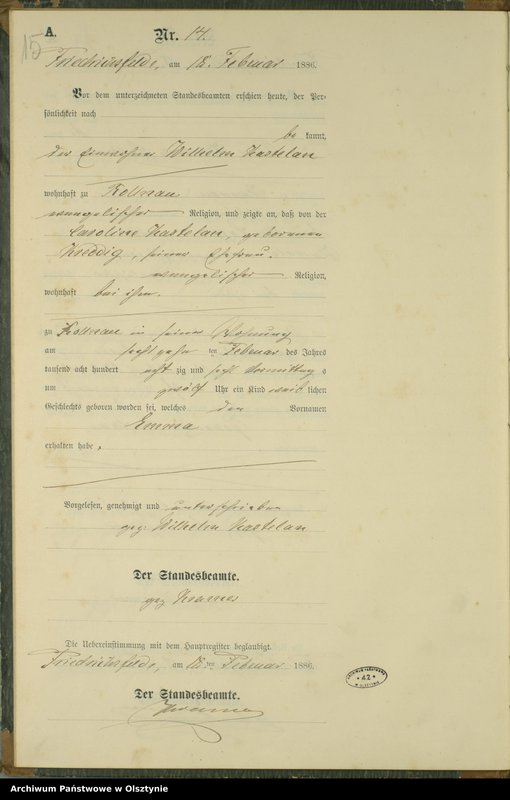 15
A.
Nr. 14.
Friedrichsfelde, am 18. Februar 1886.
Vor dem unterzeichneten Standesbeamten erschien heute, der Per-
sönlichkeit nach
be kannt,
der Einwohner Wilhelm Kastelan
wohnhaft zu
evangelischer Religion, und zeigte an, daß von der
Caroline Kastelan, geborenen
seiner Ehefrau,
evangelischer Religion,
wohnhaft bei ihm,
zu in seiner Wohnung
am sechszehn ten Februar des Jahres
tausend acht hundert acht zig und sechs Vormittag s
um zwölf Uhr ein Kind weib lichen
Geschlechts geboren worden sei, welches den Vornamen
Emma
erhalten habe.
Vorgelesen, genehmigt und unterschrieben
gez. Wilhelm Kastelan
Der Standesbeamte.
gez. Kramer
Die Uebereinstimmung mit dem Hauptregister beglaubigt.
Friedrichsfelde, am 18. ten Februar 1886.
Der Standesbeamte.
Kramer
42
Archiwum Państwowe w Olsztynie